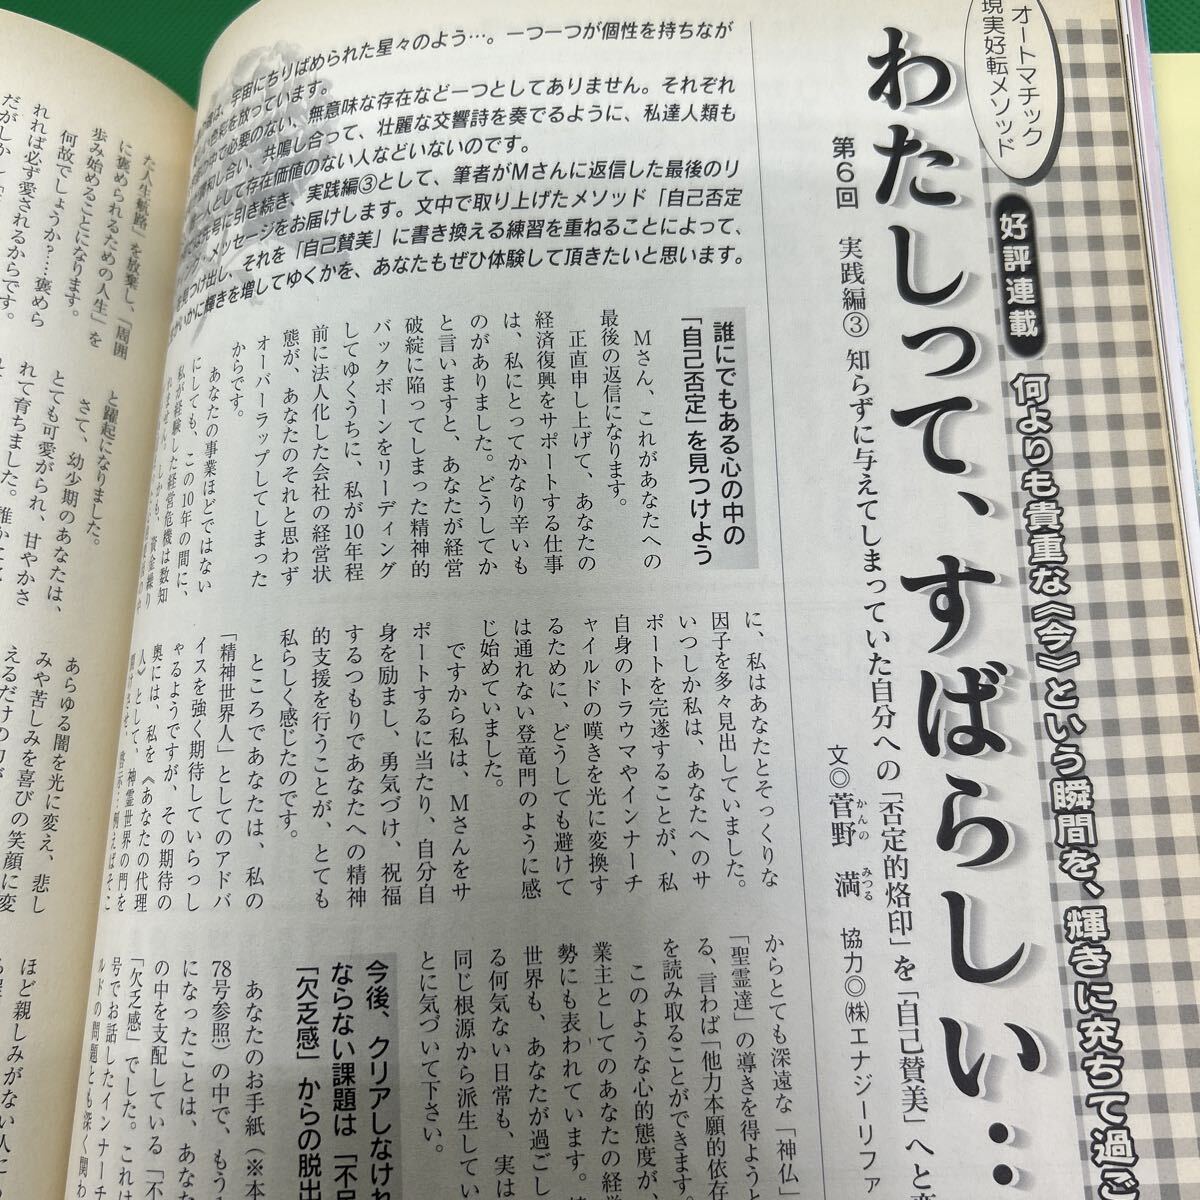 オートマチック
現実好転メソッド
好評連載
何よりも貴重な《今》という瞬間を、輝きに充ちて過ご
わたしって、すばらしい…
第6回 実践編③ 知らずに与えてしまっていた自分への「否定的烙印」を「自己賛美」へと
文◎菅野 満
かんの みつる
協力◎㈱エナジーリファ
は、宇宙にちりばめられた星々のよう…。一つ一つが個性を持ちなが
色彩を放っています。
で必要のない、無意味な存在など一つとしてありません。それぞれ
調和し合い、共鳴し合って、壮麗な交響詩を奏でるように、私達人類も
一人として存在価値のない人などいないのです。
先号に引き続き、実践編③として、筆者がMさんに返信した最後のリ
・メッセージをお届けします。文中で取り上げたメソッド「自己否定
見つけ出し、それを「自己賛美」に書き換える練習を重ねることによって、
がいかに輝きを増してゆくかを、あなたもぜひ体験して頂きたいと思います。
誰にでもある心の中の
「自己否定」を見つけよう
Mさん、これがあなたへの
最後の返信になります。
正直申し上げて、あなたの
経済復興をサポートする仕事
は、私にとってかなり辛いも
のがありました。どうしてか
と言いますと、あなたが経営
破綻に陥ってしまった精神的
バックボーンをリーディング
してゆくうちに、私が10年程
前に法人化した会社の経営状
態が、あなたのそれと思わず
オーバーラップしてしまった
からです。
あなたの事業ほどではない
にしても、この10年の間に、
私が経験した経営危機は数知
資金繰り
に、私はあなたとそっくりな
因子を多々見出していました。
いつしか私は、あなたへのサ
ポートを完遂することが、私
自身のトラウマやインナーチ
ャイルドの嘆きを光に変換す
るために、どうしても避けて
は通れない登竜門のように感
じ始めていました。
ですから私は、Mさんをサ
ポートするに当たり、自分自
身を励まし、勇気づけ、祝福
するつもりであなたへの精神
的支援を行うことが、とても
私らしく感じたのです。
ところであなたは、私の
「精神世界人」としてのアドバ
イスを強く期待していらっし
ゃるようですが、その期待の
奥には、私を《あなたの代理
人》として、神霊世界の門を
啓示…例えばそこ
からとても深遠な「神仏」
「聖霊達」の導きを得ようと
る、言わば「他力本願的依存
を読み取ることができます。
このような心的態度が、
業主としてのあなたの経営
勢にも表われています。
世界も、あなたが過ごし
る何気ない日常も、実は
同じ根源から派生してい
とに気づいて下さい。
今後、クリアしなけれ
ならない課題は「不足
「欠乏感」からの脱出
あなたのお手紙(※本
78号参照)の中で、もう
になったことは、あなた
の中を支配している「不
「欠乏感」でした。これは
号でお話したインナーチ
ルドの問題とも深く関わ
た人生航路」を放棄し、「周囲
に褒められるための人生」を
歩み始めることになります。
何故でしょうか?…褒めら
れれば必ず愛されるからです。
だがしかし
と躍起になりました。
さて、幼少期のあなたは、
とても可愛がられ、甘やかさ
れて育ちました。
あらゆる闇を光に変え、悲し
みや苦しみを喜びの笑顔に変
えるだけの力が
ほど親しみがない人に